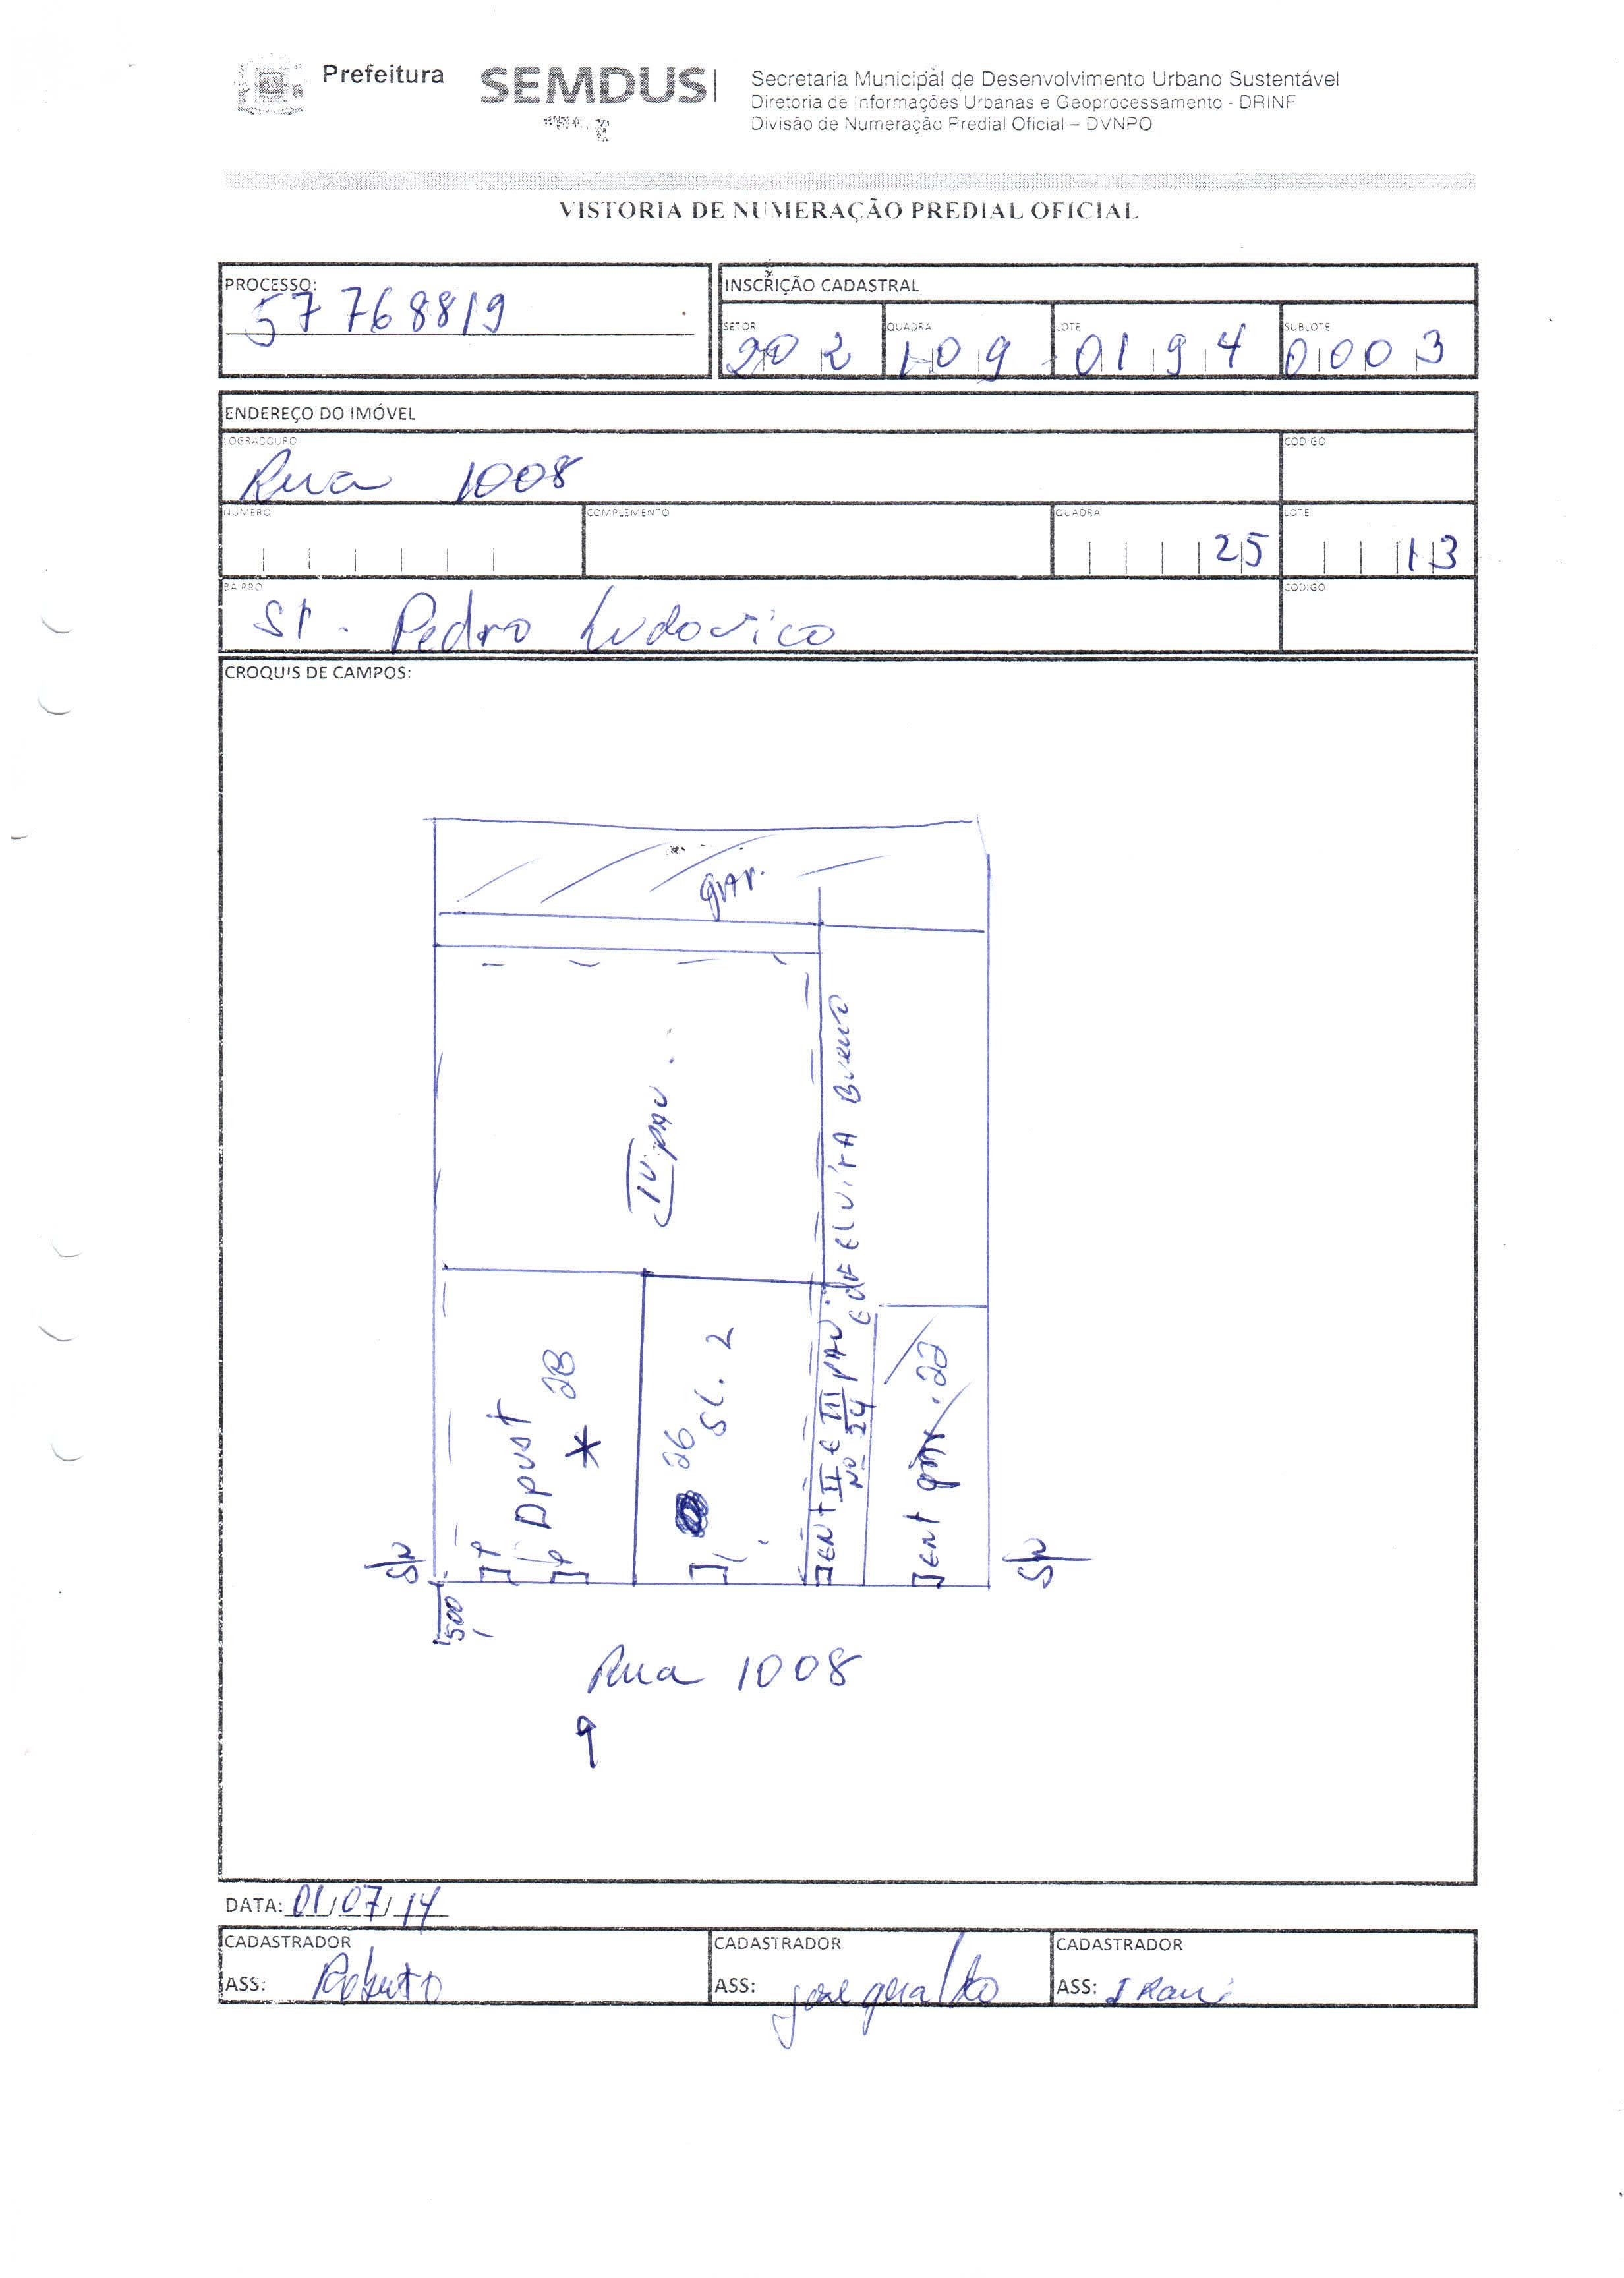 Prefeitura SEMDUS
Secretaria Municipal de Desenvolvimento Urbano Sustentável
Diretoria de Informações Urbanas e Geoprocessamento - DRINF
Divisão de Numeração Predial Oficial – DVNPO
VISTORIA DE NUMERAÇÃO PREDIAL OFICIAL
PROCESSO:
57768819
INSCRIÇÃO CADASTRAL
SETOR QUADRA LOTE SUBLOTE
202 109 0194 0003
ENDEREÇO DO IMÓVEL
LOGRADOURO CODIGO
Rua 1008
NUMERO COMPLEMENTO QUADRA LOTE
25 13
BAIRRO CODIGO
St. Pedro Ludovico
CROQUIS DE CAMPOS:
gar.
IV pav.
Edf Elvira Bueno
28
26
SL. 2
Ent II e III pav.
Nº 24
Ent gar. 22
S/N
S/N
500
Rua 1008
DATA: 01/07/14
CADASTRADOR CADASTRADOR CADASTRADOR
ASS: Roberto ASS: José Geraldo ASS: Irani